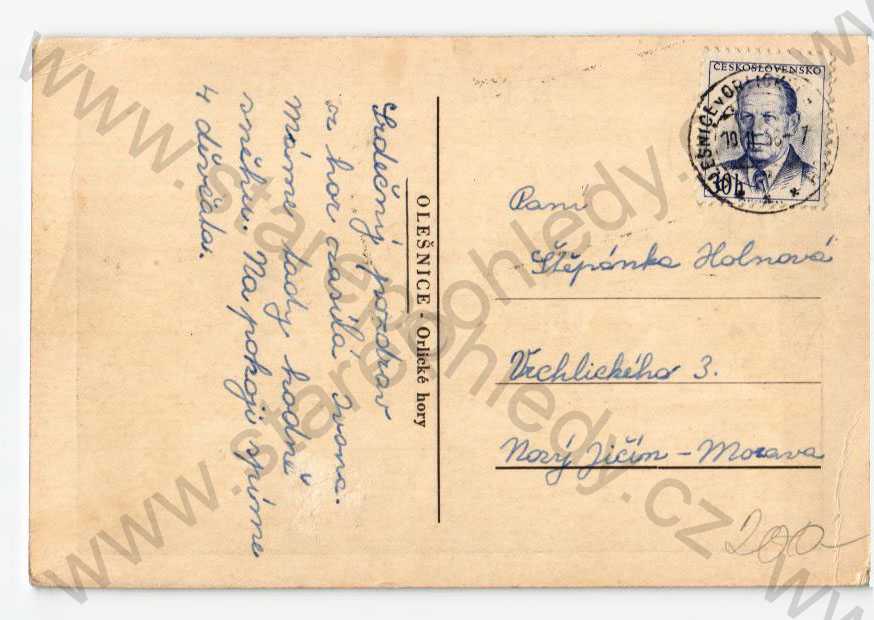 Srdečný pozdrav
z hor zasílá Ivona.
Máme tady hodně
sněhu. Na pokoji spíme
4 děvčata.
OLEŠNICE - Orlické hory
ČESKOSLOVENSKO
30h
Paní
Štěpánka Holnová
Vrchlického 3.
Nový Jičín - Morava
200
www.starepohledy.cz